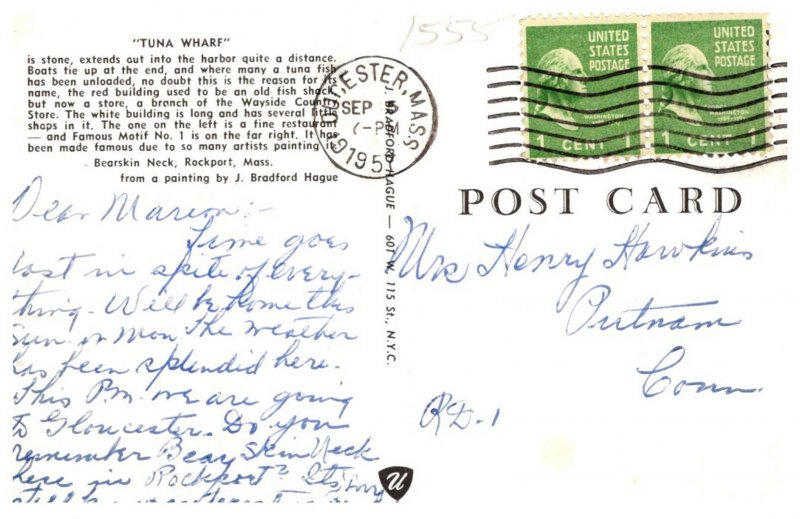 1555
"TUNA WHARF"
is stone, extends out into the harbor quite a distance.
Boats tie up at the end, and where many a tuna fish
has been unloaded, no doubt this is the reason for its
name, the red building used to be an old fish shack,
but now a store, a branch of the Wayside Country
Store. The white building is long and has several little
shops in it. The one on the left is a fine restaurant
— and Famous Motif No. 1 is on the far right. It has
been made famous due to so many artists painting it.
Bearskin Neck, Rockport, Mass.
from a painting by J. Bradford Hague
Dear Marion:-
Time goes
fast in spite of every-
thing. Will be home this
Sun. or Mon. The weather
has been splendid here.
This P.M. we are going
to Gloucester. Do you
remember Bear Skin Neck
here in Rockport? It's
J. BRADFORD HAGUE — 607 W. 115 St., N.Y.C.
U
ESTER, MASS
SEP
PM
1951
UNITED
STATES
POSTAGE
WASHINGTON
1 CENT 1
UNITED
STATES
POSTAGE
WASHINGTON
1 CENT 1
POST CARD
Mrs Henry Hawkins
Putnam
Conn.
RD-1